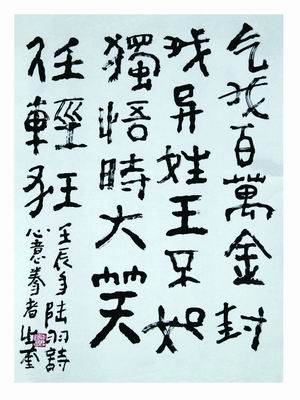 乞我百萬金封
我异姓王不如
獨悟時大笑
任輕狂
壬辰年陸羽詩
心意拳者奎